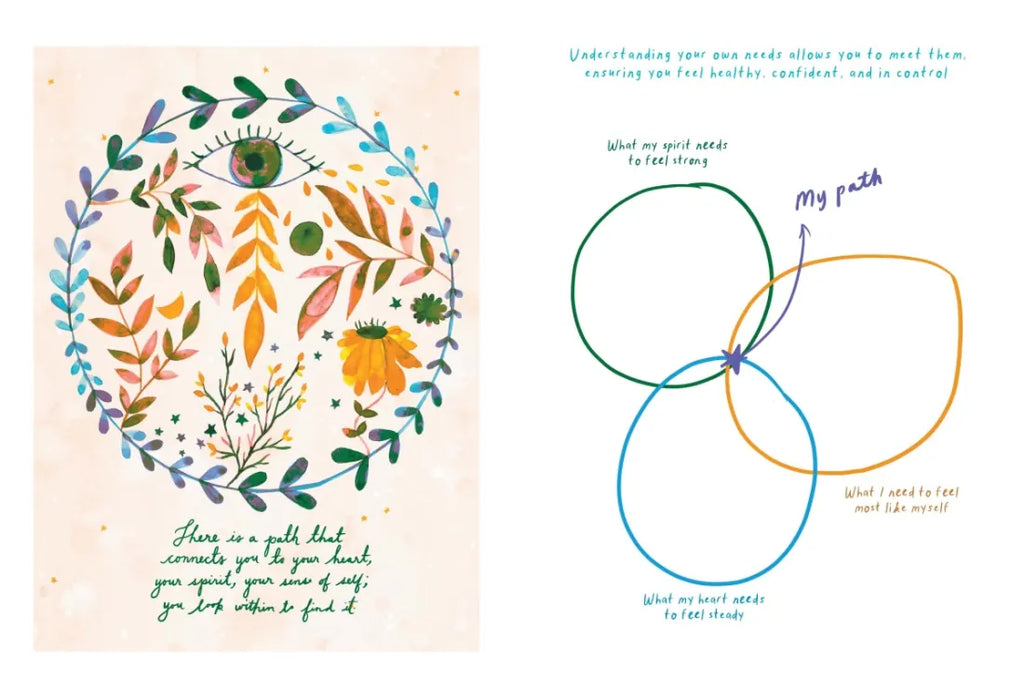 There is a path that
connects you to your heart,
your spirit, your sense of self;
you look within to find it
Understanding your own needs allows you to meet them,
ensuring you feel healthy, confident, and in control
What my spirit needs
to feel strong
My path
What I need to feel
most like myself
What my heart needs
to feel steady